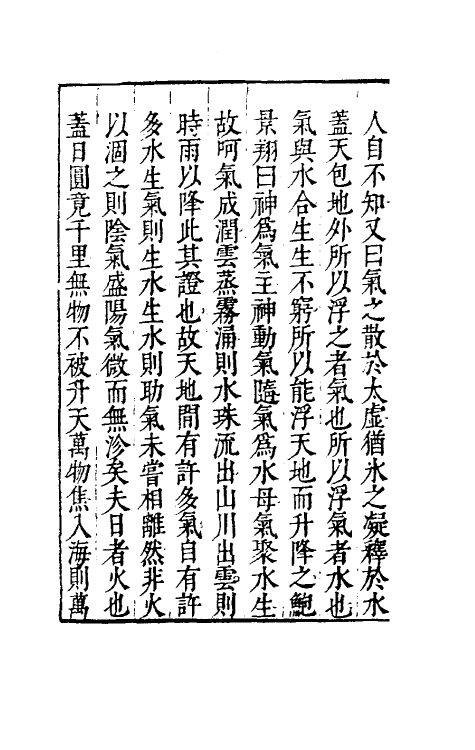 人自不知又曰氣之散於太虛猶氷之凝釋於水
蓋天包地外所以浮之者氣也所以浮氣者水也
氣與水合生生不窮所以能浮天地而升降之鮑
景翔曰神爲氣主神動氣隨氣爲水母氣聚水生
故呵氣成潤雲蒸霧滃則水珠流出山川出雲則
時雨以降此其證也故天地間有許多氣自有許
多水生氣則生水生水則助氣未嘗相離然非火
以涸之則陰氣盛陽氣微而無沴矣夫日者火也
蓋日圓竟千里無物不被升天萬物焦入海則萬